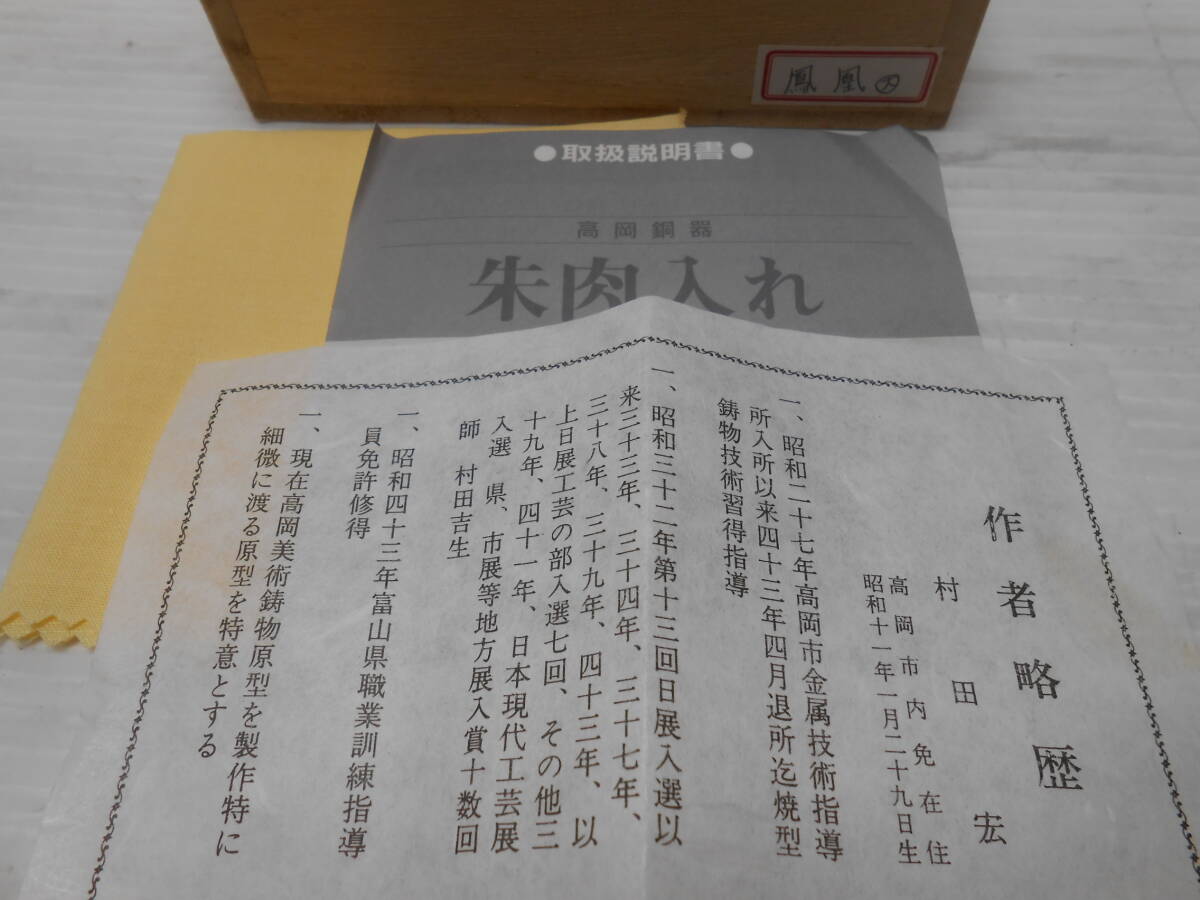 鳳凰㊅
●取扱説明書●
高岡銅器
朱肉入れ
作者略歴
村田宏
高岡市内免在住
昭和十一年一月二十九日生
一、昭和二十七年高岡市金属技術指導
所入所以来四十三年四月退所迄焼型
鋳物技術習得指導
一、昭和三十二年第十三回日展入選以
来三十三年、三十四年、三十七年、
三十八年、三十九年、四十三年、以
上日展工芸の部入選七回、その他三
十九年、四十一年、日本現代工芸展
入選 県、市展等地方展入賞十数回
師 村田吉生
一、昭和四十三年富山県職業訓練指導
員免許修得
一、現在高岡美術鋳物原型を製作特に
細微に渡る原型を特意とする